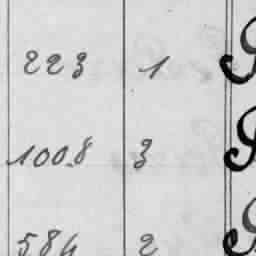 223 1
1008 3
584 2